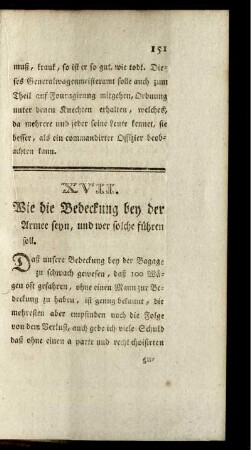 151
muß, krank, so ist er so gut, wie todt. Die-
ses Generalwagenmeisteramt solle auch zum
Theil auf Fouragirung mitgehen, Ordnung
unter denen Knechten erhalten, welches,
da mehrere und jeder seine Leute kennet, sie
besser, als ein commandirter Offizier beob-
achten kann.
XVII.
Wie die Bedeckung bey der
Armee seyn, und wer solche führen
soll.
Daß unsere Bedeckung bey der Bagage
zu schwach gewesen, daß 100 Wä-
gen oft gefahren, ohne einen Mann zur Be-
deckung zu haben, ist genug bekannt, die
mehresten aber empfinden noch die Folge
von dem Verlust, auch gebe ich viele Schuld
daß ohne einen a parte und recht choisirten